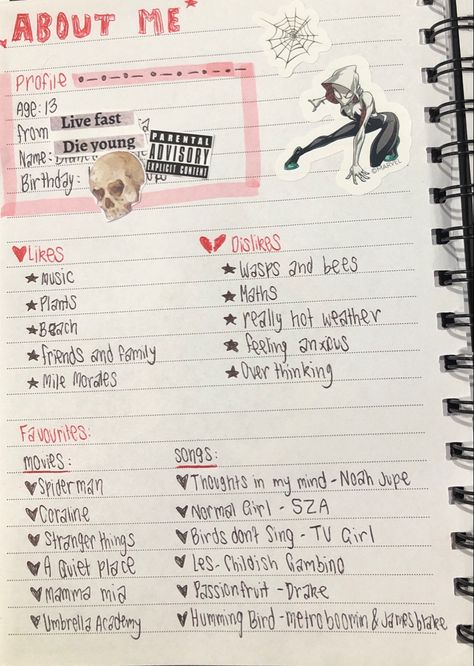 ABOUT ME
Profile
Age: 13
from
Live fast
Die young
Name:
PARENTAL
ADVISORY
EXPLICIT CONTENT
Birthday:
©MARVEL
Likes
Music
Plants
Beach
friends and family
Mile Morales
Dislikes
Wasps and bees
Maths
really hot weather
feeling anxious
Over thinking
Favourites:
movies:
Spiderman
Coraline
Stranger things
A Quiet Place
Mamma mia
Umbrella Academy
songs:
Thoughts in my mind - Noah Jupe
Normal Girl - SZA
Birds don't Sing - TV Girl
Les - Childish Gambino
Passionfruit - Drake
Humming Bird - metro boomin & James blake